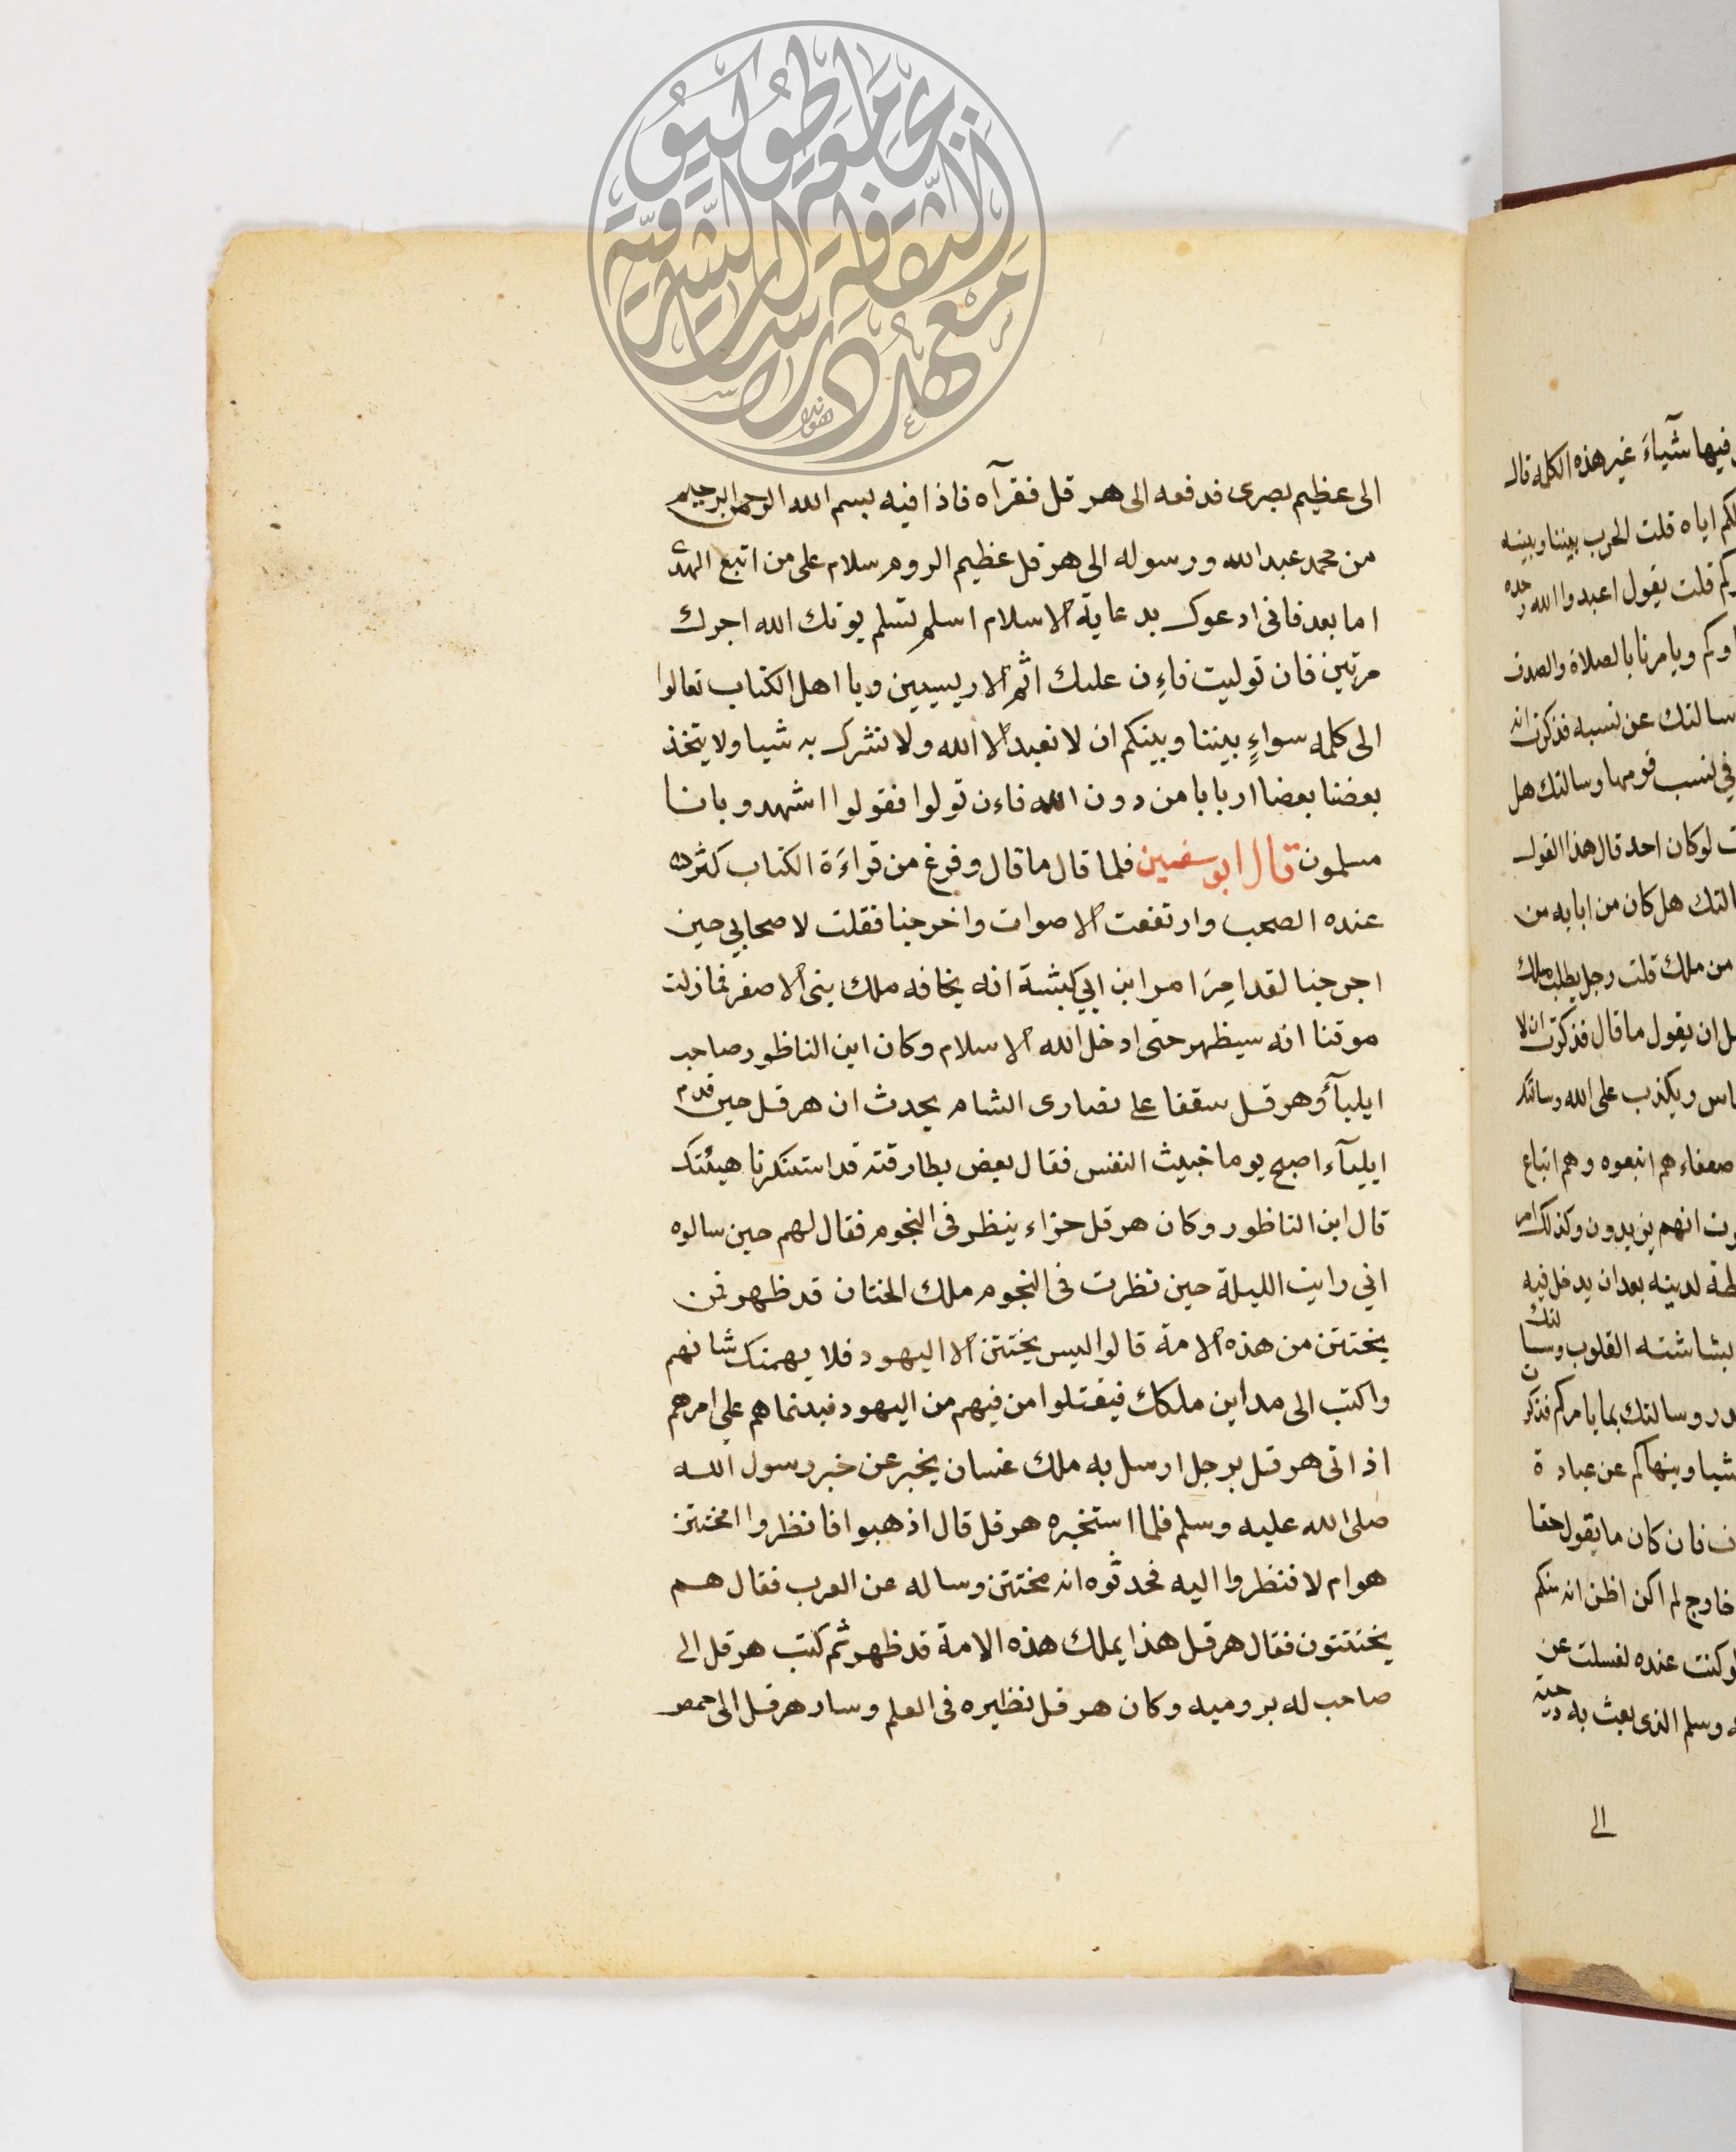 الى عظيم بصرى فدفعه الى هرقل فقرآه فاذا فيه بسم الله الرحمن الرحيم
من محمد عبد الله ورسوله الى هرقل عظيم الروم سلام على من اتبع الهدى
اما بعد فانى ادعوك بدعاية الاسلام اسلم تسلم يوتك الله اجرك
مرتين فان توليت فاءِن عليك اثم الاريسيين ويا اهل الكتاب تعالوا
الى كلمه سواءٍ بيننا وبينكم ان لا نعبد الا الله ولا نشرك به شيا ولا يتخذ
بعضنا بعضا اربابا من دون الله فاءن تولوا فقولوا اشهدو بانا
مسلمون قال ابو سفيين فلما قال ما قال وفرغ من قراءَة الكتاب كثر
عنده الصحب وارتفعت الاصوات واخرجنا فقلت لاصحابي حين
اجرجنا لقد امِرَ امر ابن ابي كبشة انه يخافه ملك بنى الاصفر فما زلت
موقنا انه سيظهر حتى ادخل الله الاسلام وكان ابن الناظور صاحب
ايليآؤ هرقل سقفا على نصارى الشام يحدث ان هرقل حين قدم
ايليآء اصبح يوما خبيث النفس فقال بعض بطارقته قد استنكرنا هيئتك
قال ابن الناظور وكان هرقل حزاء ينظر فى النجوم فقال لهم حين سالوه
اني رايت الليلة حين نظرت فى النجوم ملك الختان قد ظهر فمن
يختتن من هذه الامة قالوا ليس يختتن الا اليهود فلا يهمنك شانهم
واكتب الى مداين ملكك فيقتلوا من فيهم من اليهود فبدنماهم على امرهم
اذ اتى هرقل برجل ارسل به ملك غسان يخبر عن خبر رسول الله
صلى الله عليه وسلم فلما استخبره هرقل قال اذهبوا فانظروا امختتن
هو ام لا فنظروا اليه فحدثوه انه مختتن وساله عن العرب فقال هم
يختتنون فقال هرقل هذا يملك هذه الامة قد ظهر ثم كتب هرقل الى
صاحب له بروميه وكان هرقل نظيره فى العلم وسار هرقل الى حمص
فيها شآياءَ غير هذه الكلمه قال
اياه قلت الحرب بيننا وبينه
قلت يقول اعبدوا الله وحده
ويامرنا بالصلاة والصدق
سالتك عن نسبه فذكرت انه
فى نسب قومها وسالتك هل
لو كان احد قال هذا القول
هل كان من ابايه من
من ملك قلت رجل يطلب ملك
ان يقول ما قال فذكرت ان لا
ويكذب على الله وسالتك
ضعفاءهم اتبعوه وهم اتباع
انهم يزيدون وكذلك امر
لدينه بعد ان يدخل فيه
بشاشته القلوب وسالتك
وسالتك بما يامركم فذكرت
شيا وينهاكم عن عبادة
فان كان ما يقول حقا
خارج لم اكن اظن انه منكم
كنت عنده لغسلت عن
وسلم الذى بعث به دحية
الى
معهد دراسات الثقافة الشرقية بجامعة طوكيو